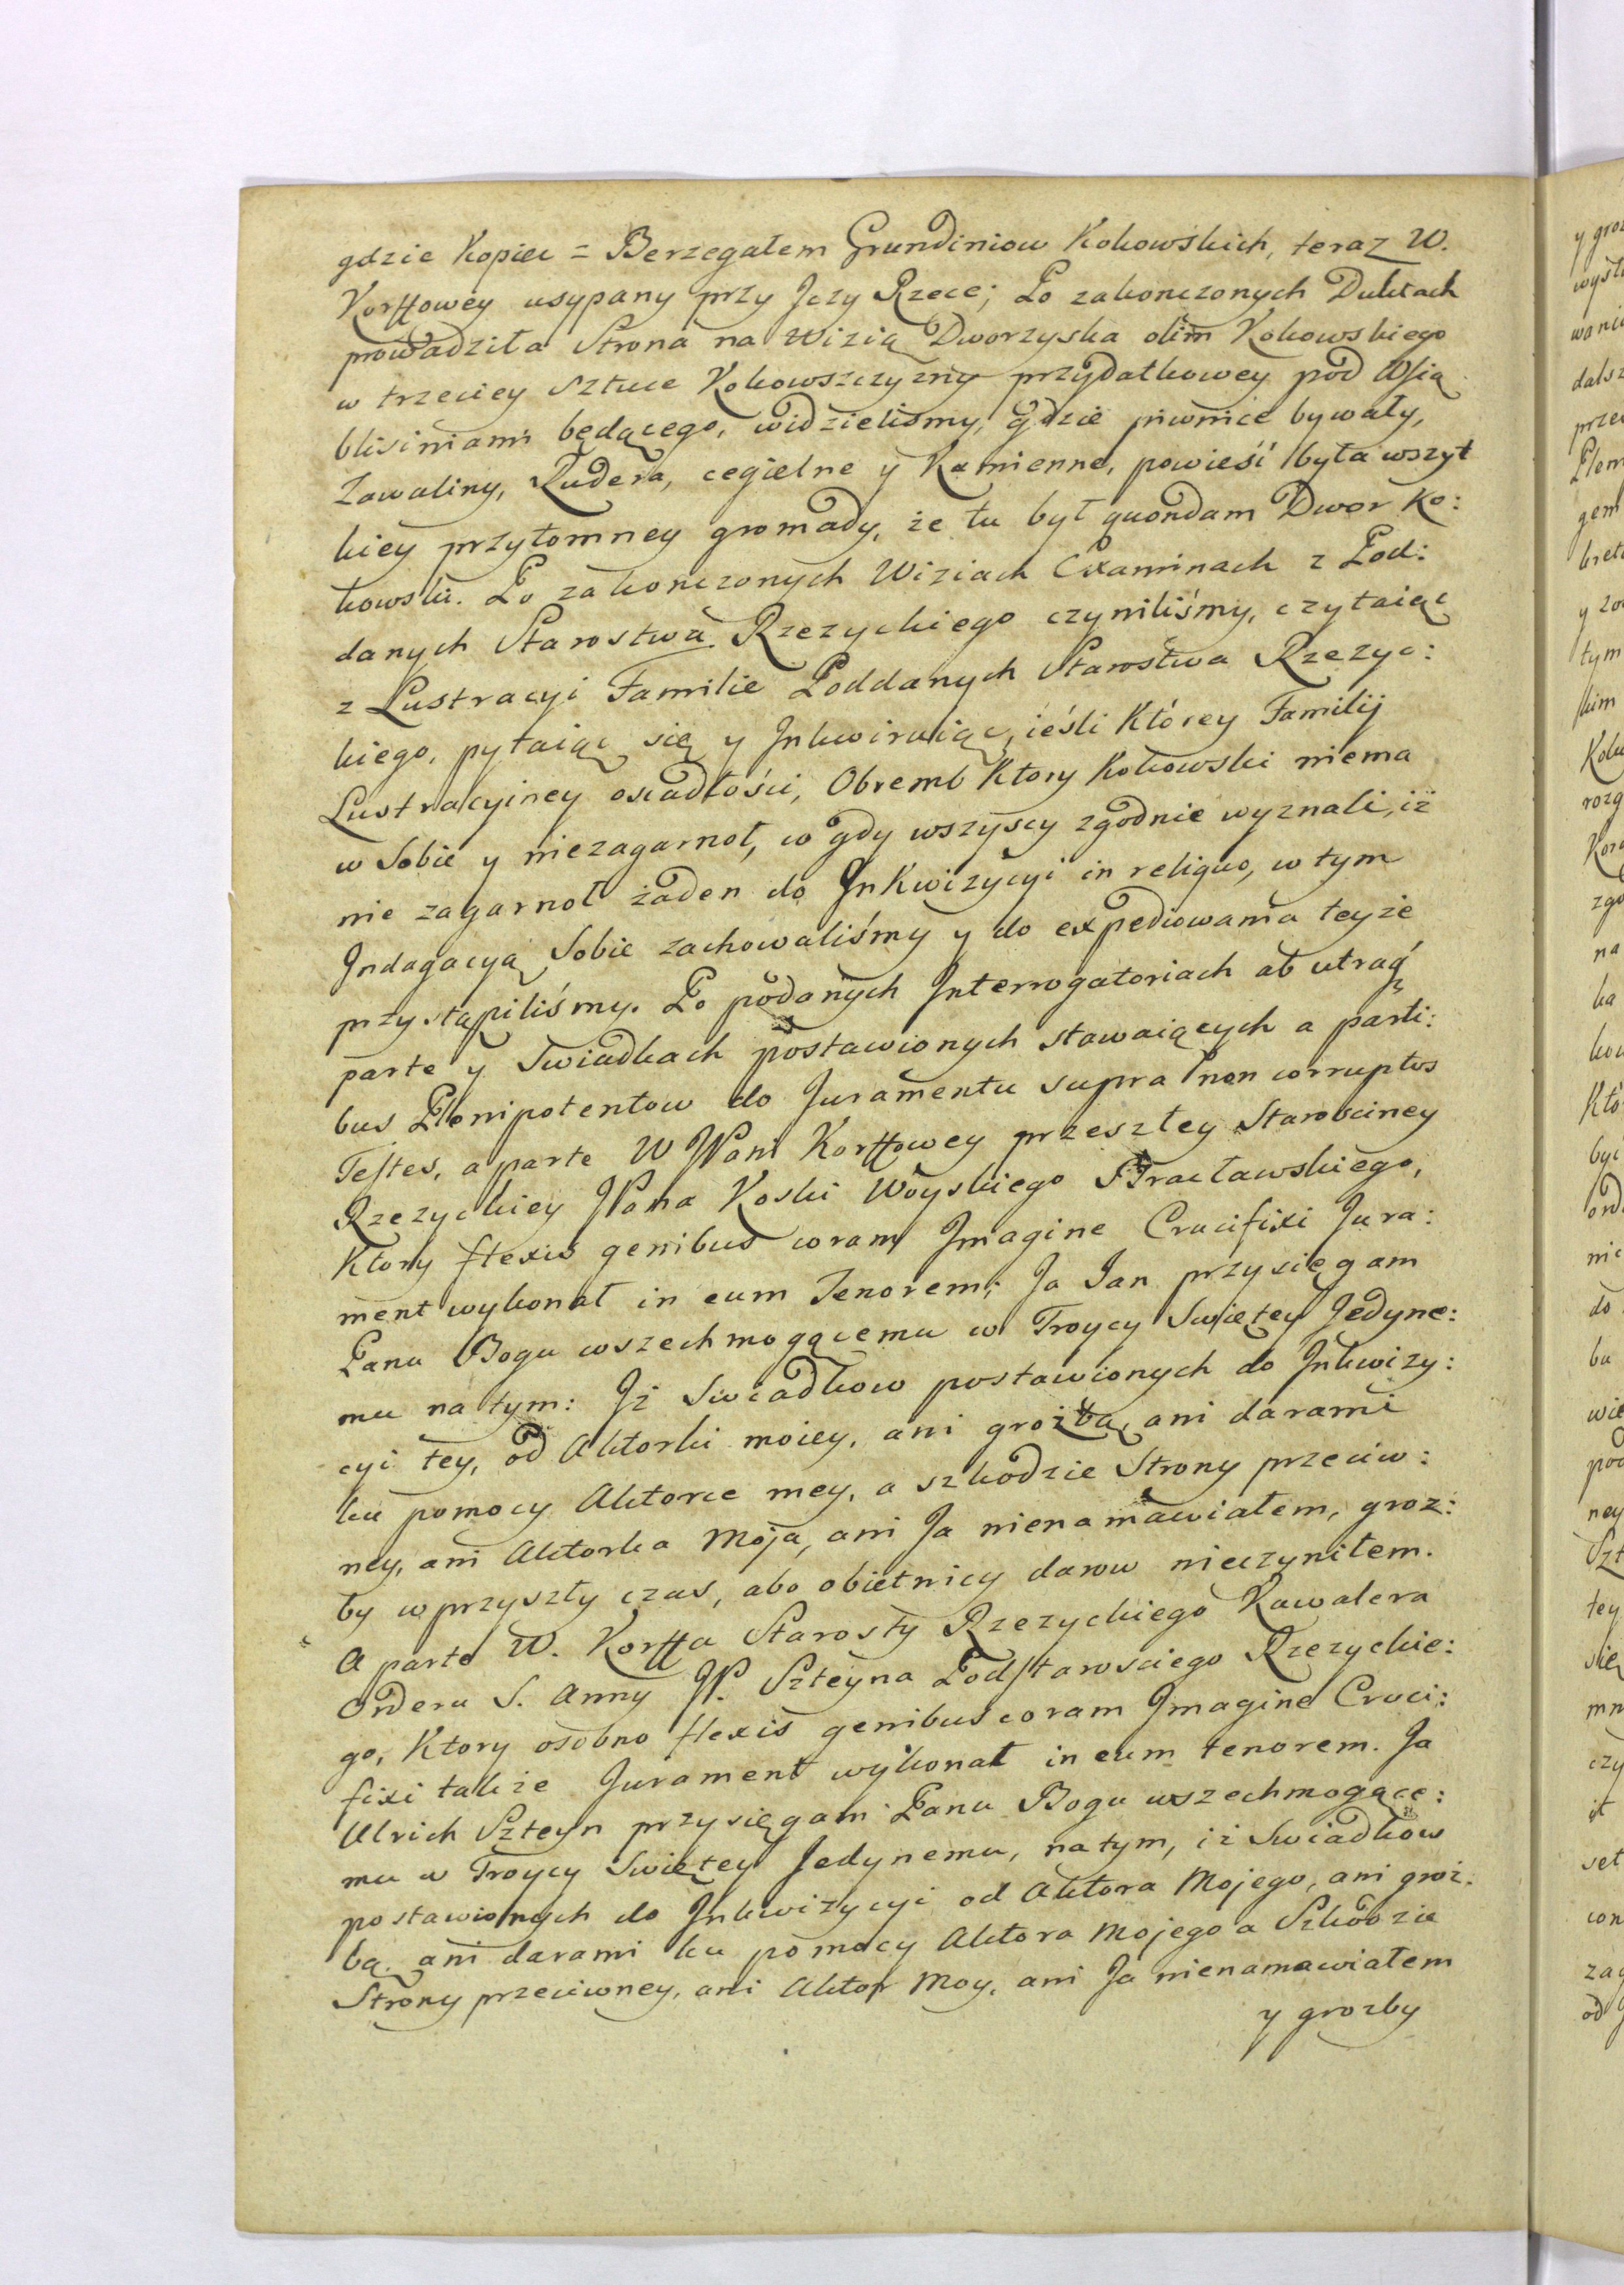 gdzie Kopiec = Berzegałem Grundiniow Kokowskich, teraz W.
Korffowey usypany przy Jczy Rzece; Po zakonczonych Duktach
prowadziła Strona na Wizią Dworzyska olim Kokowskiego
w trzeciey sztuce Kokowszczyzny przydatkowey pod Wsią
bliśiniami będącego, widzieliśmy, gdzie piwnice bywały,
Zawaliny, Rudera, cegielne y Kamienne, powieść była wszyt
kiey przytomney gromady, że tu był quondam Dwor Ko:
kowski. Po zakonczonych Wiziach Examinach z Pod:
danych Starostwa Rzezyckiego czyniliśmy, czytaiąc
z Lustracyi Familie Poddanych Starostwa Rzezyc:
kiego, pytaiąc się y Inkwiruiąc, ieśli Którey Familij
Lustracyiney osiadłości, Obremb Ktory Kokowski niema
w Sobie y niezagarnoł, co gdy wszyscy zgodnie wyznali, iż
nie zagarnoł żaden do Inkwizycyi in reliquo, w tym
Indagacyą Sobie zachowaliśmy y do expediowania teyże
przystąpiliśmy. Po podanych Interrogatoriach ab utraq
parte y Swiadkach postawionych stawaiących a parti:
bus Plenipotentow do Juramentu supra non corruptos
Testes, a parte W JPani Korffowey przeszłey Starosciney
Rzezyckiey JPana Koski Woyskiego Bracławskiego,
Ktory flexis genibus coram Imagine Crucifixi Jura:
ment wykonał in eum Tenorem; Ja Jan przysięgam
Panu Bogu wszechmogącemu w Troycy Swiętey Jedyne:
mu na tym: Iż Swiadkow postawionych do Inkwizy:
cyi tey, od Aktorki moiey, ani grożbą, ani darami
ku pomocy Aktorce mey, a szkodzie Strony przeciw:
ney, ani Aktorka Moja, ani Ja nienamawiałem, groz:
by w przyszły czas, abo obietnicy darow nieczyniłem.
A parte W. Korffa Starosty Rzezyckiego Kawalera
Orderu S. Anny JP. Szteyna Podstarosciego Rzezyckie:
go, Ktory osobno flexis genibus coram Imagine Cruci:
fixi także Jurament wykonał in eum tenorem. Ja
Ulrich Szteyn przysięgam Panu Bogu wszechmogące:
mu w Troycy Swiętey Jedynemu, na tym, iż Swiadkow
postawionych do Inkwizycyi od Aktora Mojego, ani groż:
bą, ani darami ku pomocy Aktora Mojego a Szkodzie
Strony przeciwney, ani Aktor Moy, ani Ja nienamawiałem
y grozby